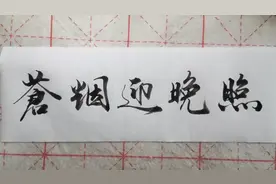 蒼烟迎晚照